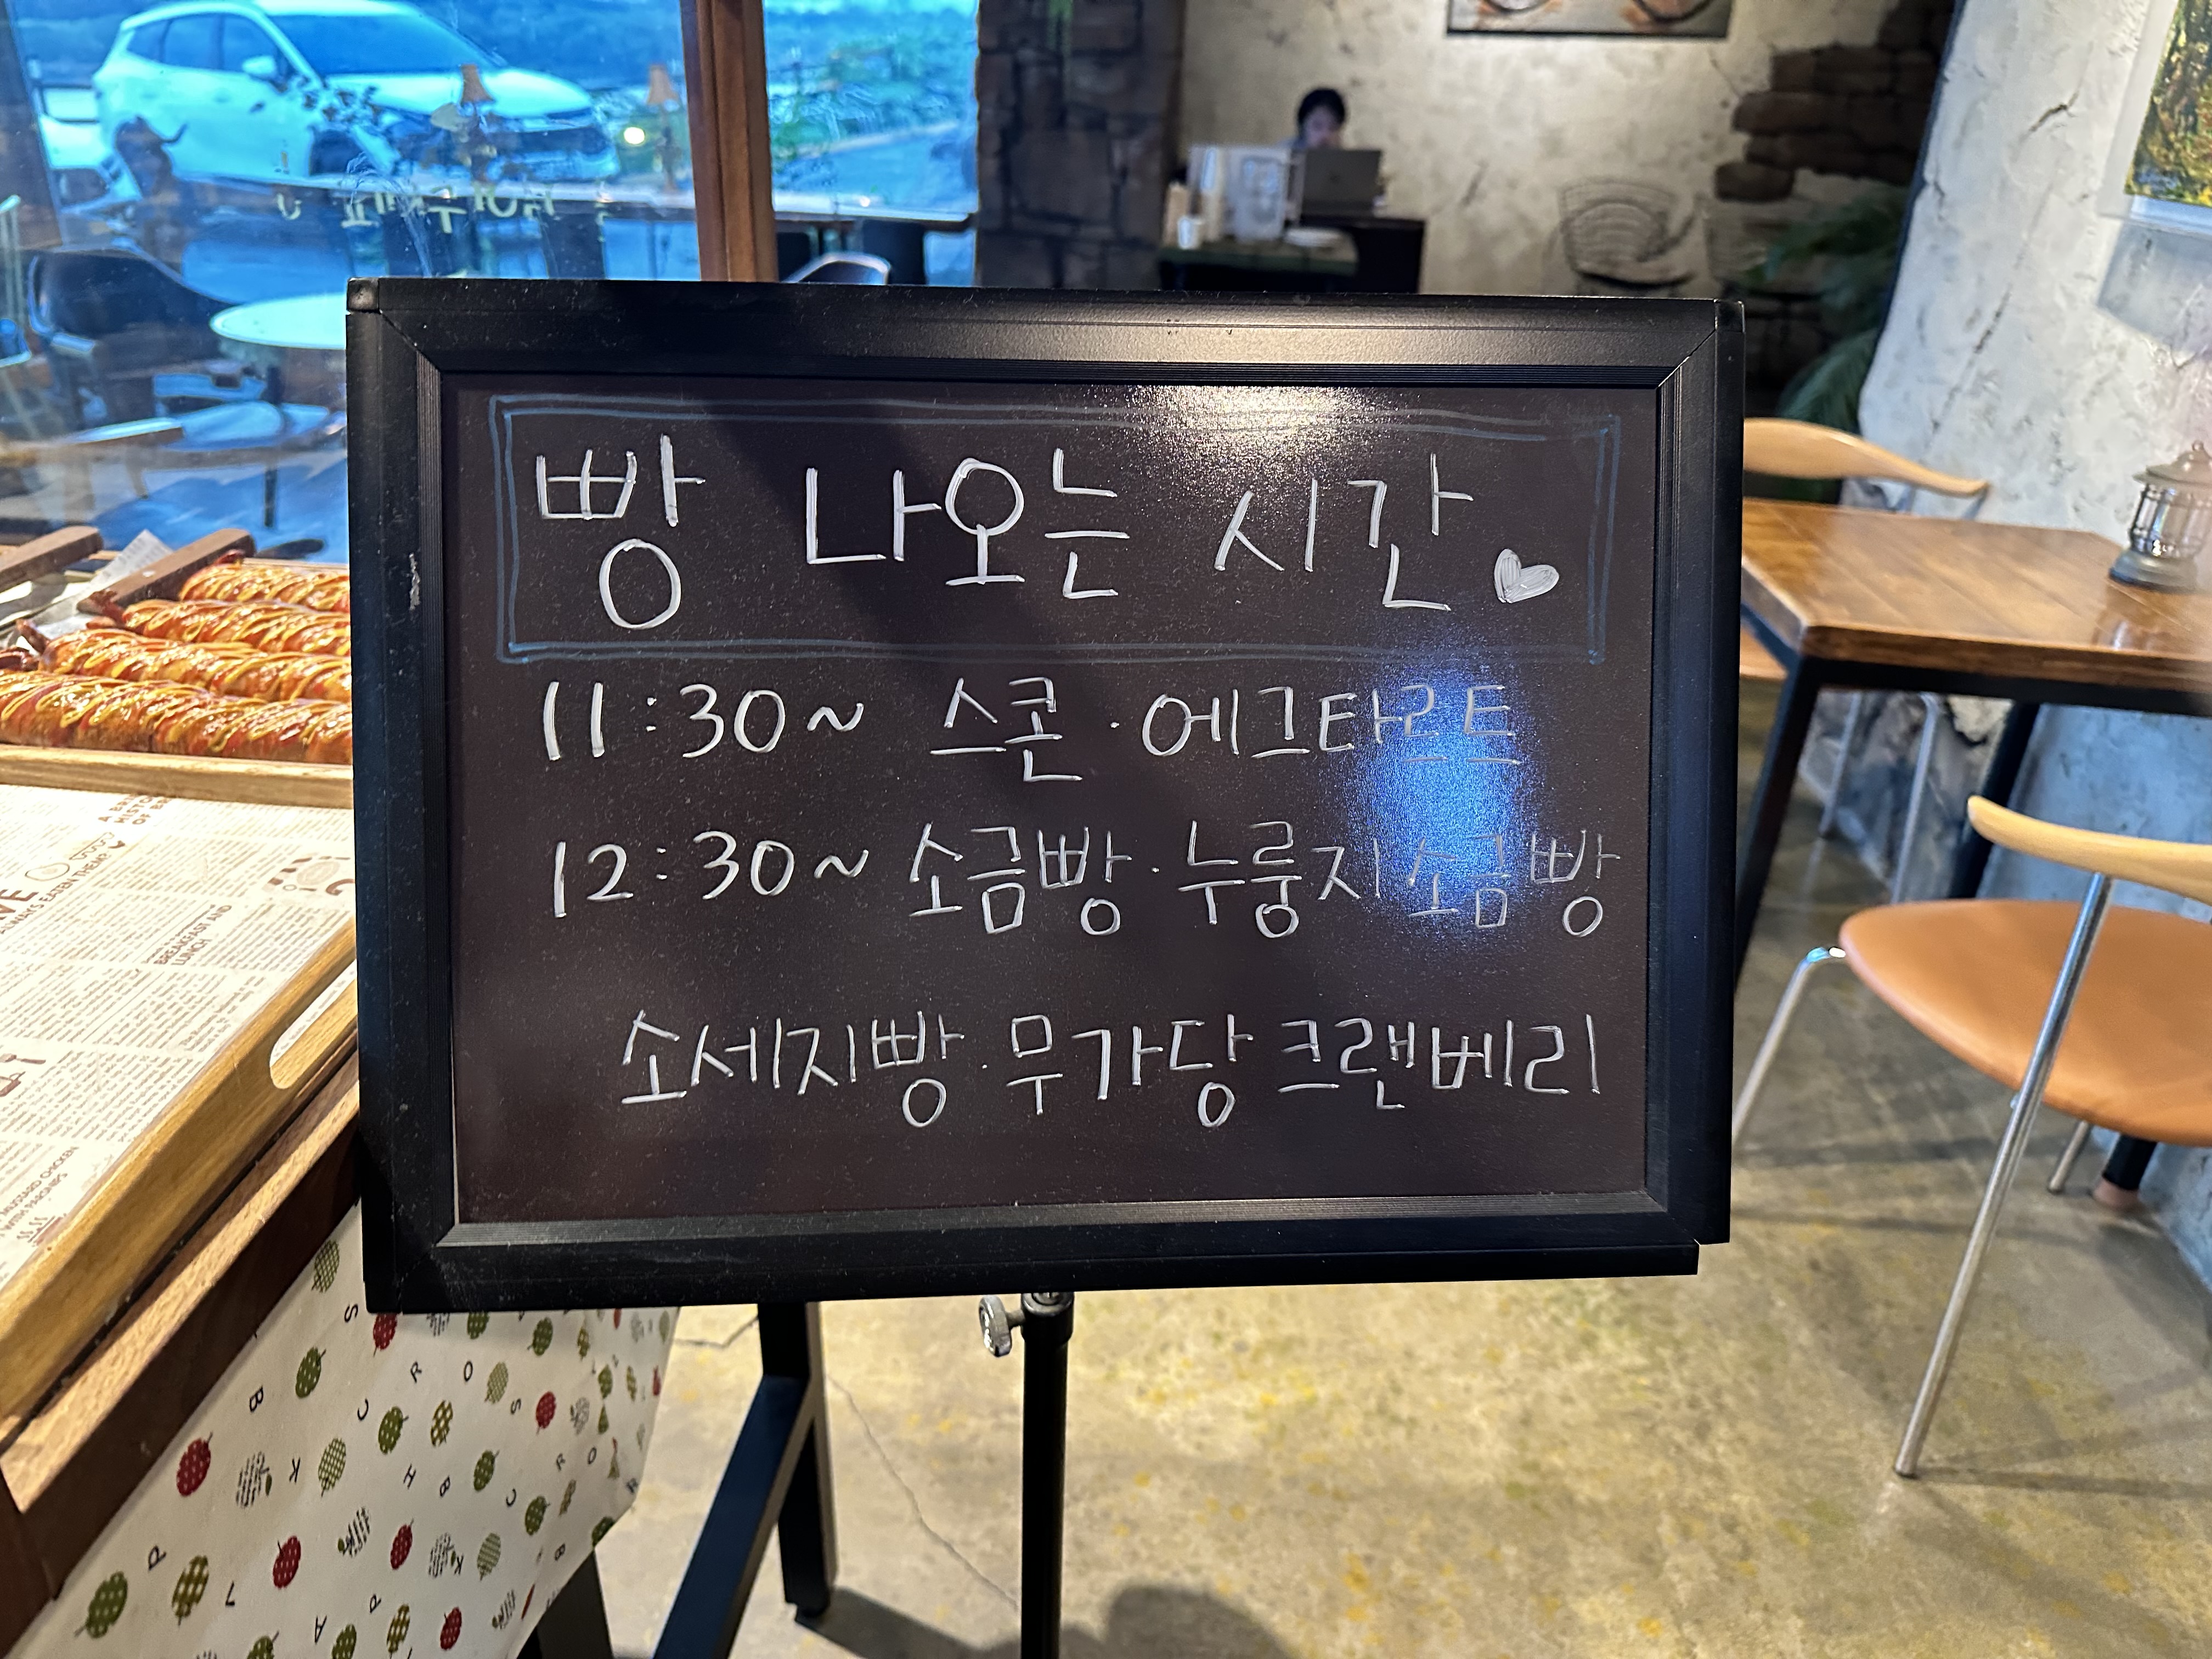 빵 나오는 시간♥
11:30~ 스콘·에그타르트
12:30~ 소금빵·누룽지소금빵
소세지빵·무가당크랜베리
BREAKFAST AND
LUNCH